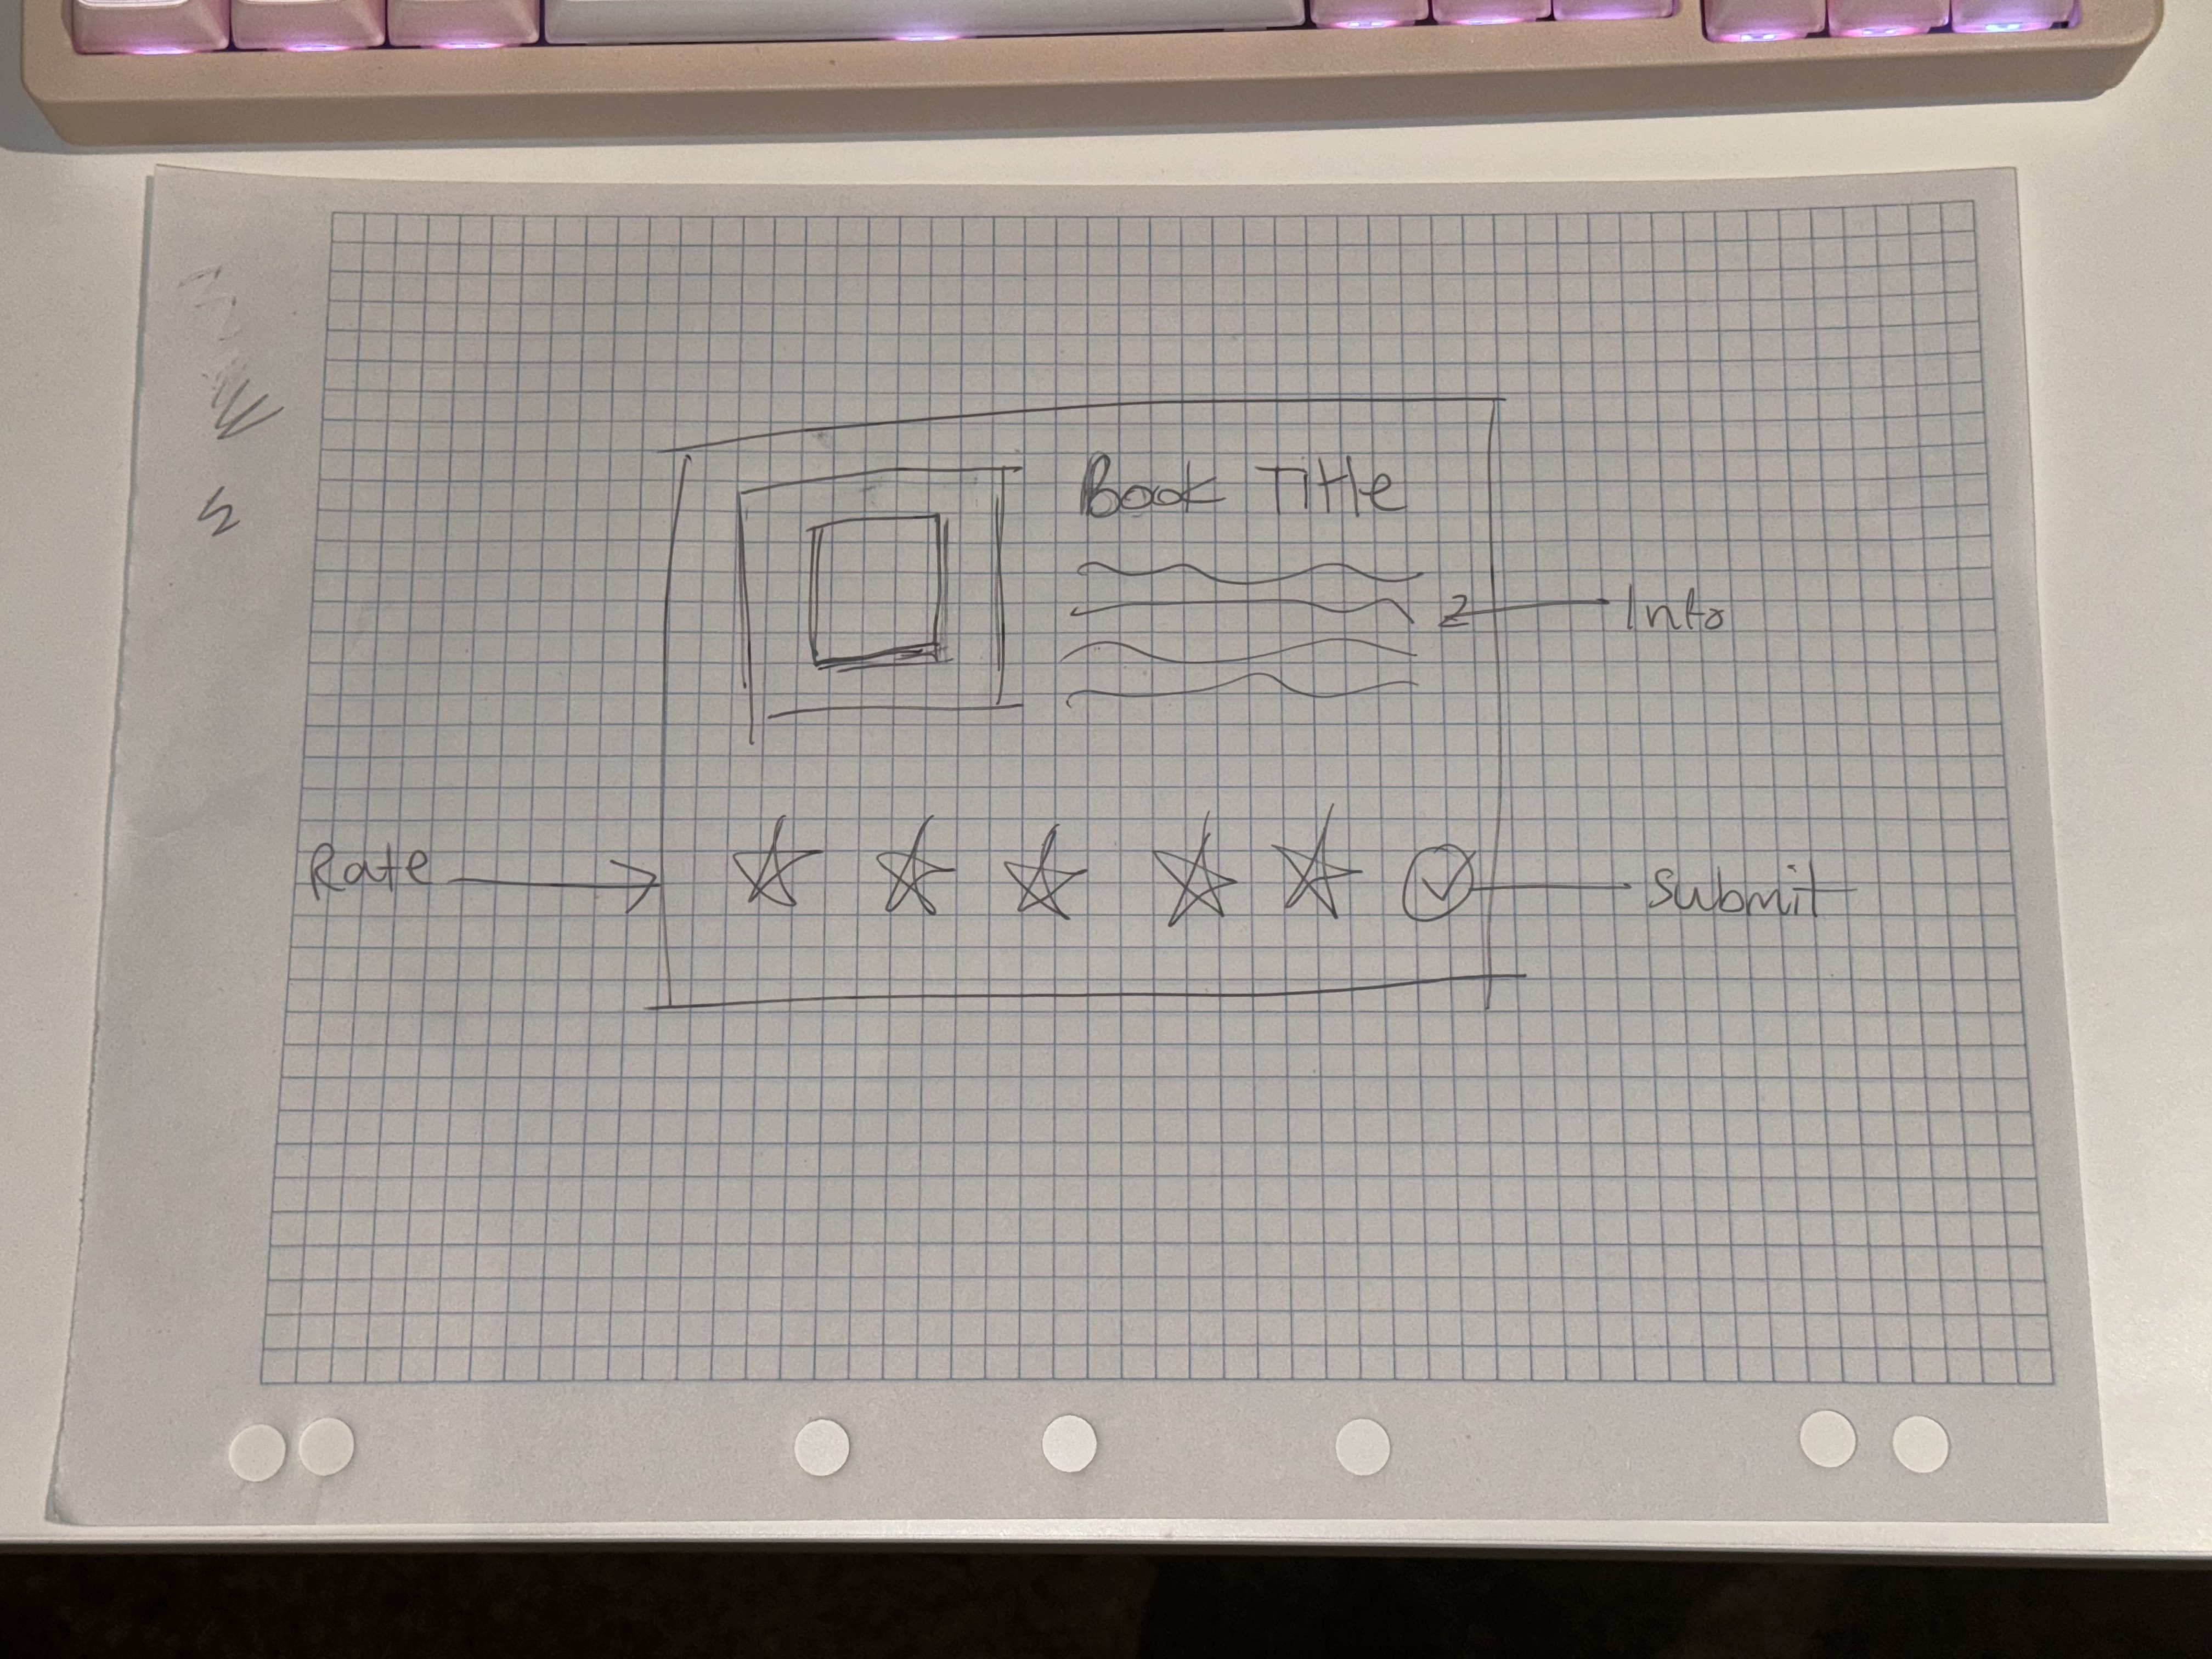 Book Title
Info
Rate
Submit